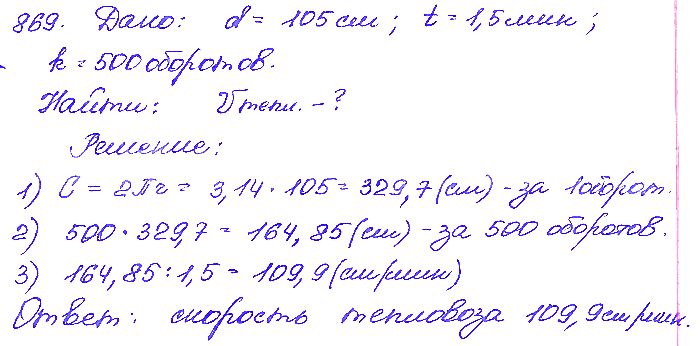 869. Дано: d = 105 см; t = 1,5 мин;
k = 500 оборотов.
Найти: Vтепл. - ?
Решение:
1) C = 2πr = 3,14 · 105 = 329,7 (см) - за 1 оборот.
2) 500 · 329,7 = 164,85 (см) - за 500 оборотов.
3) 164,85 : 1,5 = 109,9 (см/мин)
Ответ: скорость тепловоза 109,9 см/мин.